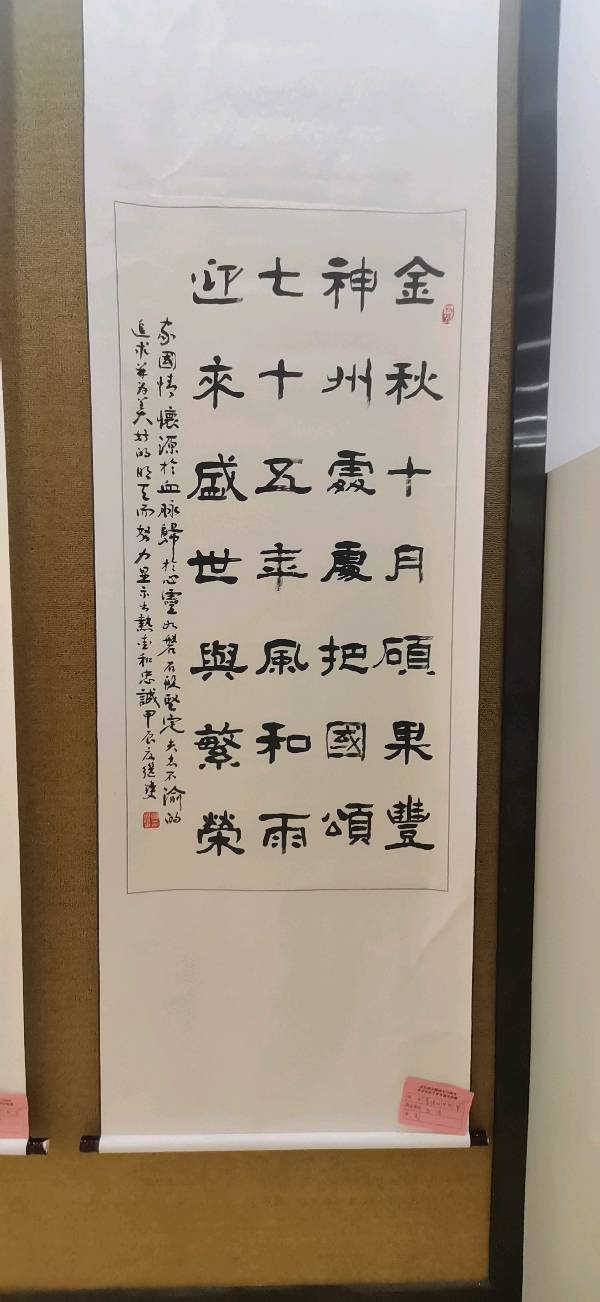 金秋十月碩果豐
神州處處把國頌
七十五年風和雨
迎來盛世與繁榮
家國情懷源於血脉歸於心靈如磐石般堅定矢志不渝的
追求并为美好的明天而努力显示出熱愛和忠誠甲辰